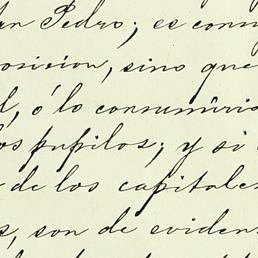 an Pedro; es consu
posicion, sino que
l, ó lo consumiris
os pupilos; y si
de los capitales
s, son de eviden